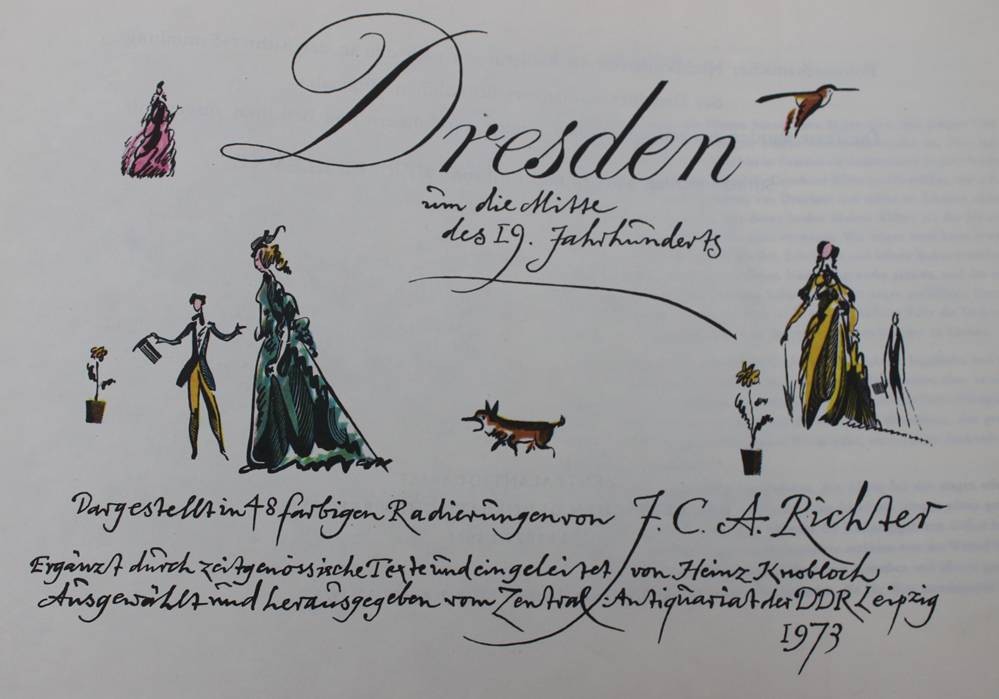 Dresden
um die Mitte
des 19. Jahrhunderts
Dargestellt in 48 farbigen Radierungen von J. C. A. Richter
Ergänzt durch zeitgenössische Texte und eingeleitet von Heinz Knobloch
Ausgewählt und herausgegeben vom Zentral-Antiquariat der DDR Leipzig
1973